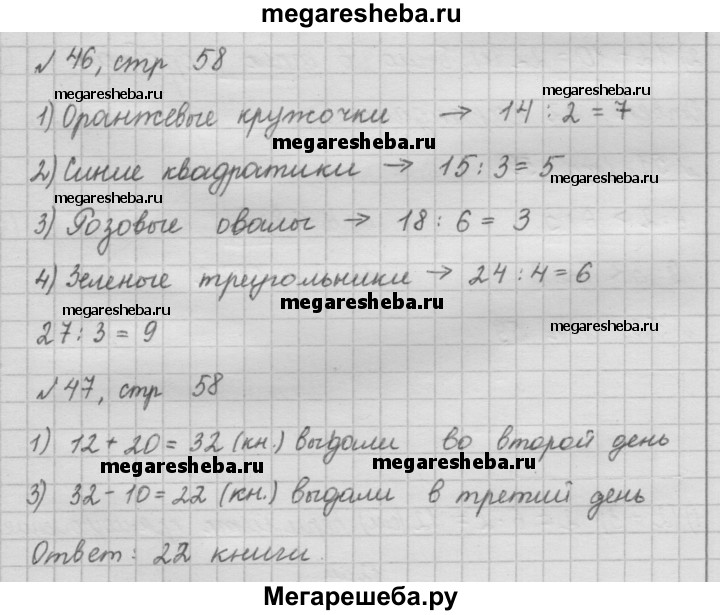 megaresheba.ru
№ 46, стр 58
megaresheba.ru
megaresheba.ru
1) Оранжевые кружочки → 14 : 2 = 7
megaresheba.ru
2) Синие квадратики → 15 : 3 = 5
megaresheba.ru
megaresheba.ru
3) Розовые овалы → 18 : 6 = 3
4) Зеленые треугольники → 24 : 4 = 6
megaresheba.ru
megaresheba.ru
megaresheba.ru
27 : 3 = 9
№ 47, стр 58
1) 12 + 20 = 32 (кн.) выдали во второй день
megaresheba.ru
megaresheba.ru
3) 32 - 10 = 22 (кн.) выдали в третий день
Ответ: 22 книги.
Мегарешеба.ру